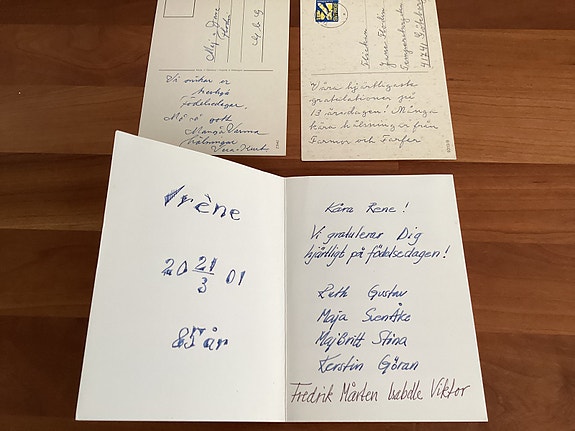 Maj
Gbg
Vi önskar er
Födelsedagar.
Må så gott
Många Varma
Hälsningar
Vera - Kurt
Flickan
Göteborg
Våra hjärtligaste
gratulationer på
13 årsdagen! Många
kära hälsningar från
Farmor och Farfar
Irène
20 21/3 01
85 år
Kära Rene!
Vi gratulerar Dig
hjärtligt på födelsedagen!
Ruth Gustav
Maja SvenÅke
MajBritt Stina
Kerstin Göran
Fredrik Mårten Isabelle Viktor